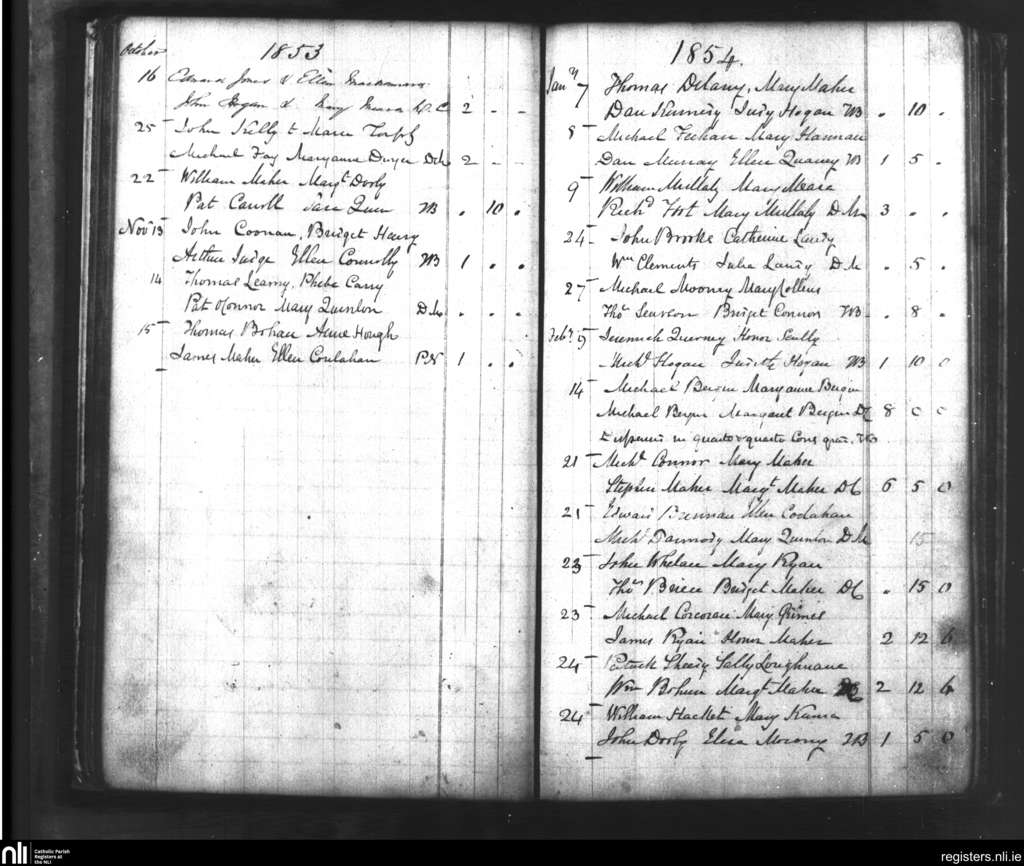 October 1853
16 Edward Jones & Ellen
John Hogan & Mary Meara W. C. 2 - -
25 John Kelly & Maria
Michael Fay Maryanne Dwyer D. M 2 - -
22 William Maher Margt Dooly
Pat Carroll Jane Quin WB . 10 .
Novr 13 John Coonan, Bridget Heany
Arthur Judge Ellen Connolly WB 1 . .
14 Thomas Leamy, Phebe Carry
Pat OConnor Mary Quinlon D. M . . .
15 Thomas Bohan Anne Hough
James Maher Ellen Coulahan P.N 1 . .
1854.
Jany 7 Thomas Delany, Mary Maher
Dan Kennedy Judy Hogan WB . 10 .
8 Michael Feehan Mary Hannan
Dan Murray Ellen WB 1 5 .
9 William Mullaly Mary Meara
Richd Mary Mullaly D. M 3 . .
24 John Brooks Catherine Landy
Wm Clements Julia Landy D. M . 5 .
27 Michael Mooney Mary Collins
Thos Bridget Connor WB . 8 .
Feby 9 Honor Scully
Michl Hogan Judith Hogan WB 1 10 0
14 Michael Bergin Maryanne Bergin
Michael Bergin Margaret Bergin DC 8 0 0
in quarto & quarto Cons grad. WB
21 Michl Connor Mary Maher
Stephen Maher Margt Maher DC 6 5 0
21 Edward Brennan Ellen Coolahan
Michl Darmody Mary Quinlon D. M 15
23 John Whelan Mary Ryan
Thos Brien Bridget Maher DC . 15 0
23 Michael Corcoran Mary Grimes
James Ryan Honor Maher 2 12 6
24 Patrick Sheedy Sally Loughnane
Wm Bohan Margt Maher 2 12 6
24 William Hacket Mary
John Dooly Eliza Mooney WB 1 5 0
nli Catholic Parish
Registers at
the NLI
registers.nli.ie